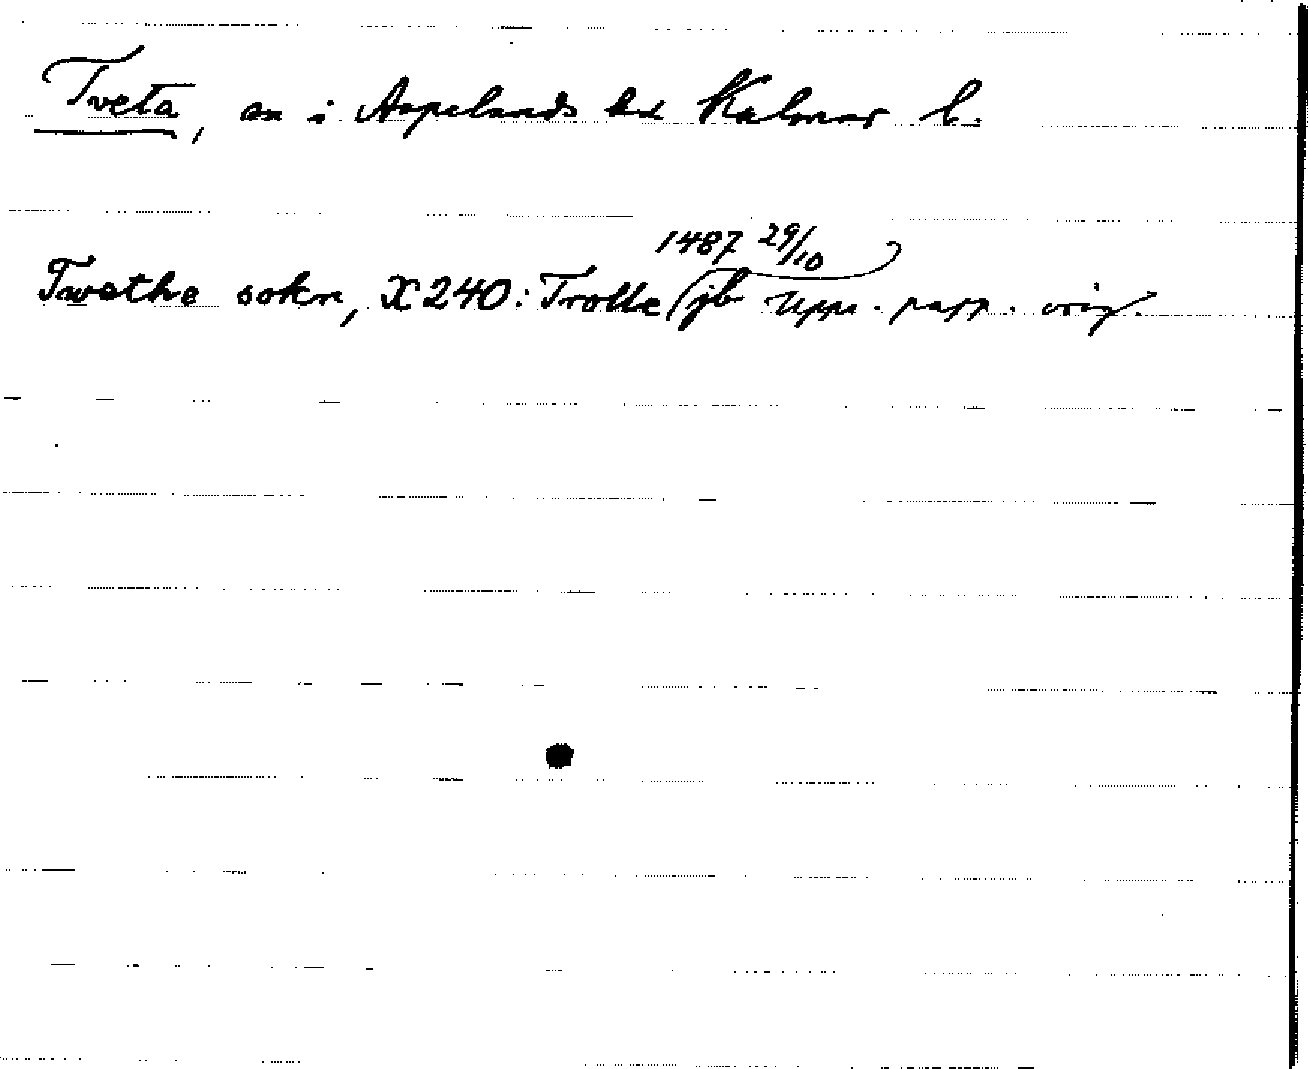 Tveta, sn i Aspelands hd Kalmar l.
1487 29/10
Twethe sokn, X240: Trolle jb Upps. papp. orig.